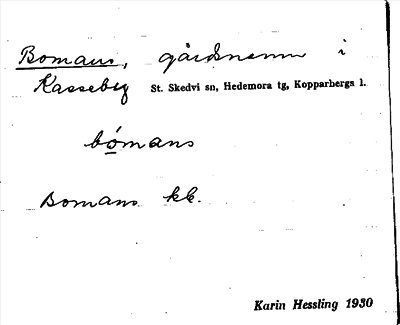 Bomans, gårdsnamn i
Kasseby St. Skedvi sn, Hedemora tg, Kopparbergs l.
bómans
Bomans kb.
Karin Hessling 1930